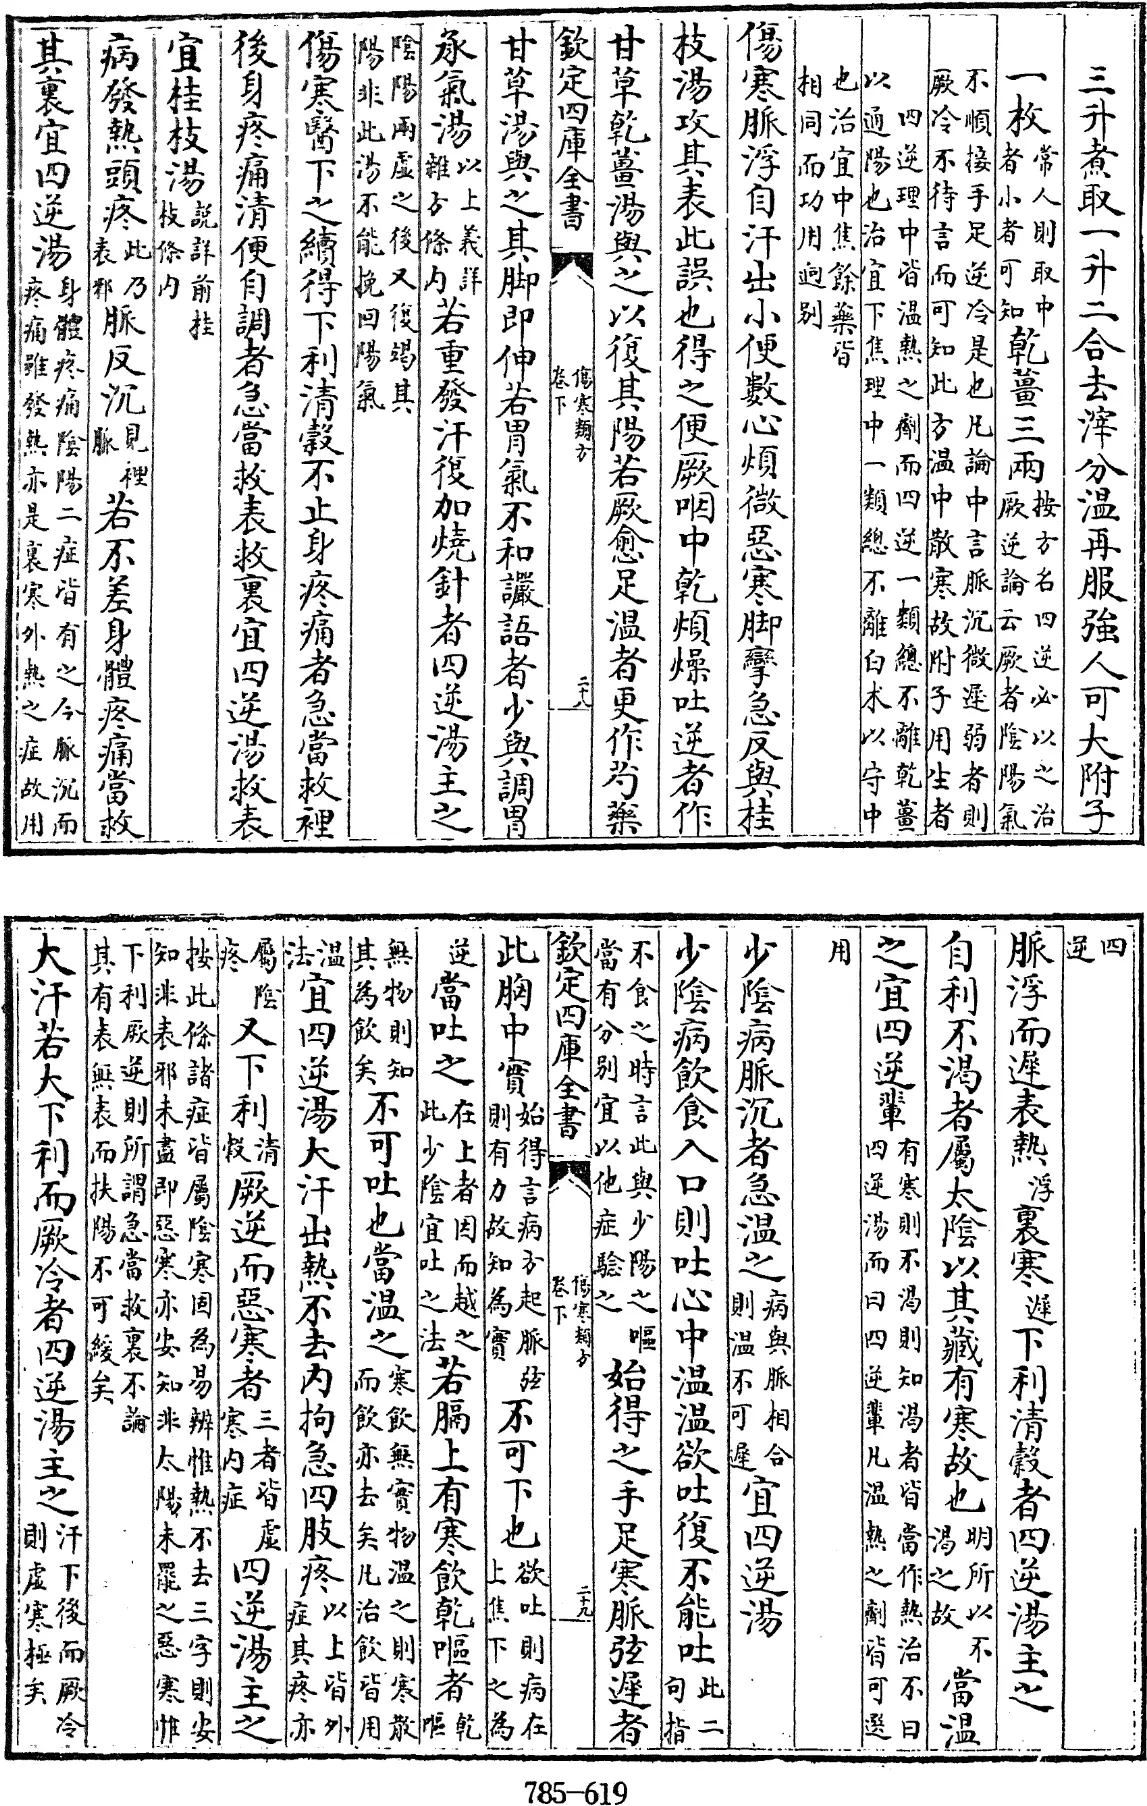 三升煮取一升二合去滓分温再服強人可大附子
一枚常人則取中者小者可知乾薑三兩按方名四逆必以之治厥逆論云厥者陰陽氣
不順接手足逆冷是也凡論中言脈沉微遲弱者則厥冷不待言而可知此方温中散寒故附子用生者
四逆理中皆温熱之劑而四逆一類總不離乾薑以通陽也治宜下焦理中一類總不離白术以守中
也治宜中焦餘藥皆相同而功用迥别
傷寒脈浮自汗出小便數心煩微惡寒脚攣急反與桂
枝湯攻其表此誤也得之便厥咽中乾煩燥吐逆者作
甘草乾薑湯與之以復其陽若厥愈足温者更作芍藥
欽定四庫全書 傷寒類方卷下 二十八
甘草湯與之其脚即伸若胃氣不和讝語者少與調胃
承氣湯以上義詳雜方條内若重發汗復加燒針者四逆湯主之
陰陽兩虛之後又復竭其陽非此湯不能挽回陽氣
傷寒醫下之續得下利清穀不止身疼痛者急當救裡
後身疼痛清便自調者急當救表救裏宜四逆湯救表
宜桂枝湯説詳前桂枝條内
病發熱頭疼此乃表邪脈反沉見裡脈若不差身體疼痛當救
其裏宜四逆湯身體疼痛陰陽二症皆有之今脈沉而疼痛雖發熱亦是裏寒外熱之症故用
四逆
脈浮而遲表熱浮裏寒遲下利清穀者四逆湯主之
自利不渴者屬太陰以其藏有寒故也明所以不渴之故當温
之宜四逆輩有寒則不渴則知渴者皆當作熱治不曰四逆湯而曰四逆輩凡温熱之劑皆可選
用
少陰病脈沉者急温之病與脈相合則温不可遲宜四逆湯
少陰病飲食入口則吐心中温温欲吐復不能吐此二句指
不食之時言此與少陽之嘔當有分别宜以他症驗之始得之手足寒脈弦遲者
欽定四庫全書 傷寒類方卷下 二十九
此胸中實始得言病方起脈弦則有力故知為實不可下也欲吐則病在上焦下之為
逆當吐之在上者因而越之此少陰宜吐之法若膈上有寒飲乾嘔者乾嘔
無物則知其為飲矣不可吐也當温之寒飲無實物温之則寒散而飲亦去矣凡治飲皆用
温法宜四逆湯大汗出熱不去内拘急四肢疼以上皆外症其疼亦
屬陰疼又下利清穀厥逆而惡寒者三者皆虛寒内症四逆湯主之
按此條諸症皆屬陰寒固為易辨惟熱不去三字則安知非表邪未盡即惡寒亦安知非太陽未罷之惡寒惟
下利厥逆則所謂急當救裏不論其有表無表而扶陽不可緩矣
大汗若大下利而厥冷者四逆湯主之汗下後而厥冷則虛寒極矣
785-619